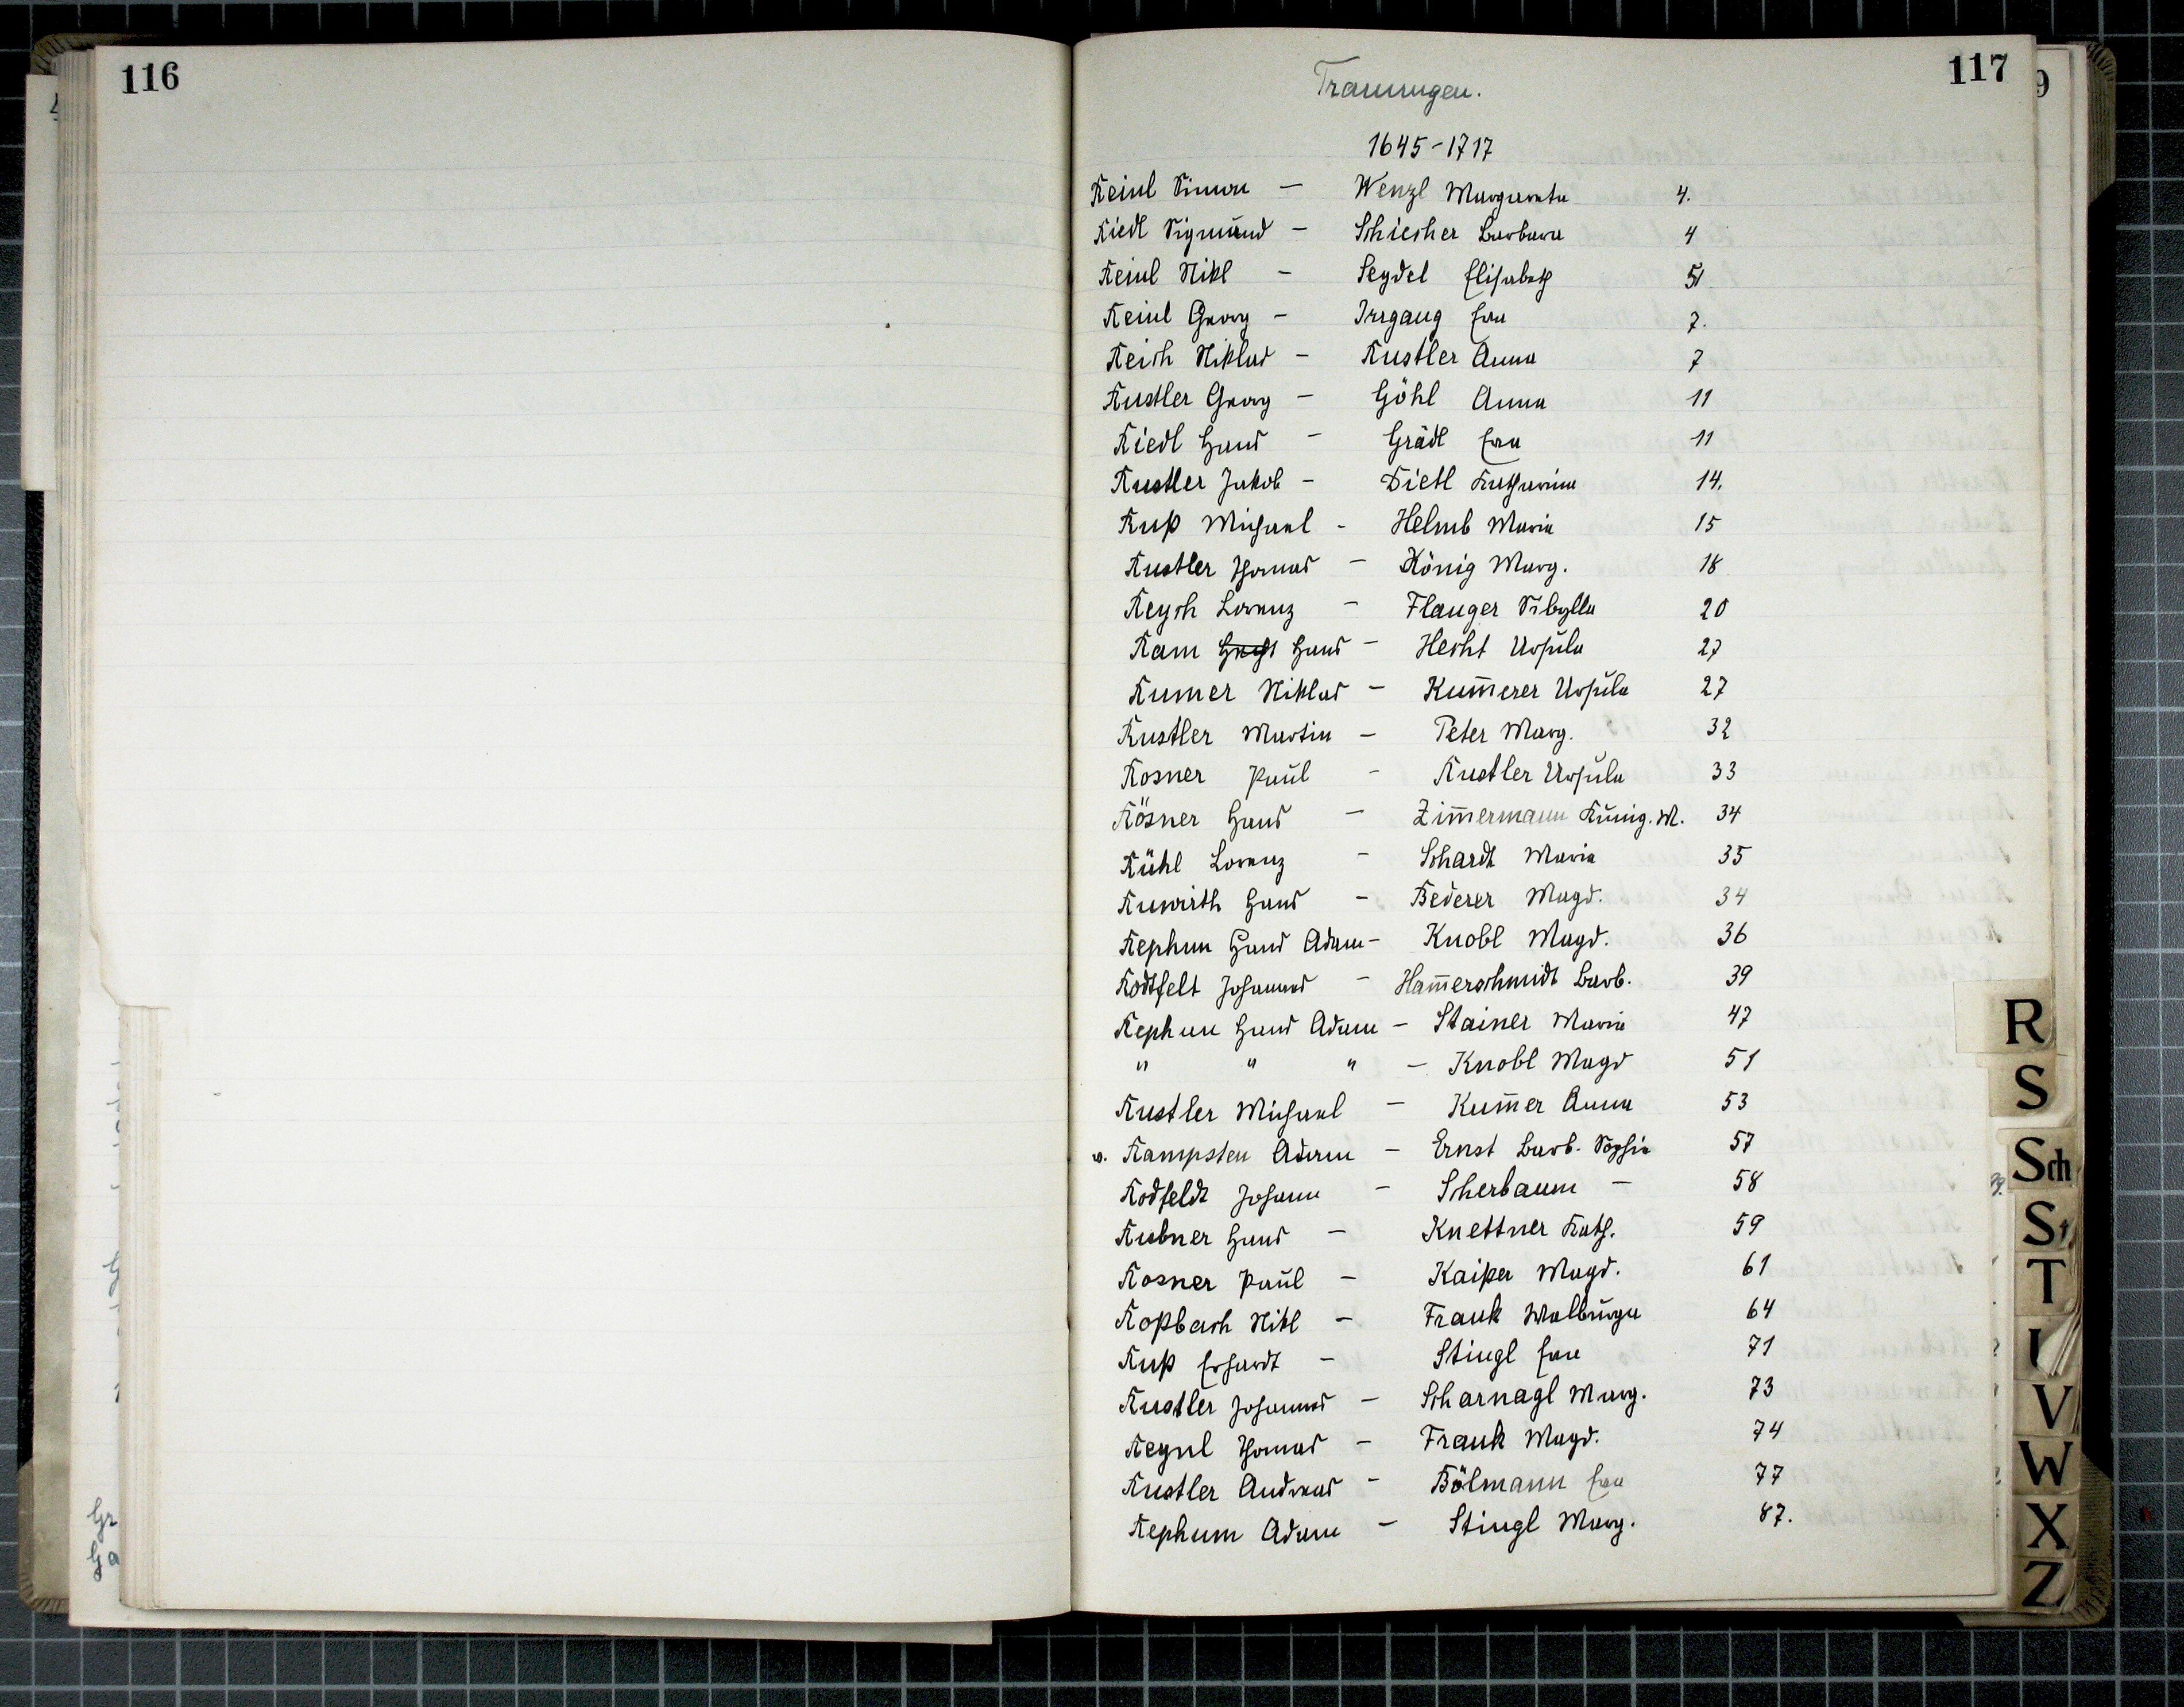 116
117
Trauungen.
1645-1717
Reinl Simon - Wenzl Margareta 4.
Riedl Sigmund - Schiecher Barbara 4
Reinl Nikl - Seydel Elisabeth 51
Reinl Georg - Irrgang Eva 7.
Reich Niklas - Rustler Anna 7
Rustler Georg - Göhl Anna 11
Riedl Hans - Grädl Eva 11
Rustler Jakob - Dietl Katharina 14.
Ruß Michael - Helmb Maria 15
Rustler Thomas - König Marg. 18
Reych Lorenz - Flauger Sibylla 20
Ram Hans - Hecht Ursula 27
Rumer Niklas - Kum̅erer Ursula 27
Rustler Martin - Peter Marg. 32
Rosner Paul - Rustler Ursula 33
Rösner Hans - Zim̅ermann Kunig. M. 34
Rühl Lorenz - Schardt Maria 35
Ruwirth Hans - Bederer Magd. 34
Rephun Hans Adam - Knobl Magd. 36
Rodtfelt Johannes - Ham̅erschmidt Barb. 39
Rephun Hans Adam - Stainer Maria 47
" " " - Knobl Magd 51
Rustler Michael - Kum̅er Anna 53
v. Rampsten Adam - Ernst Barb. Sophia 57
Rodfeldt Johann - Scherbaum - 58
Rubner Hans - Knettner Kath. 59
Rosner Paul - Kaißer Magd. 61
Roßbach Nikl - Frank Walburga 64
Ruß Erhardt - Stingl Eva 71
Rustler Johannes - Scharnagl Marg. 73
Reynl Thomas - Frank Magd. 74
Rustler Andreas - Bölmann Eva 77
Rephum Adam - Stingl Marg. 87.
R
S
Sch
St
T
V
W
X
Z